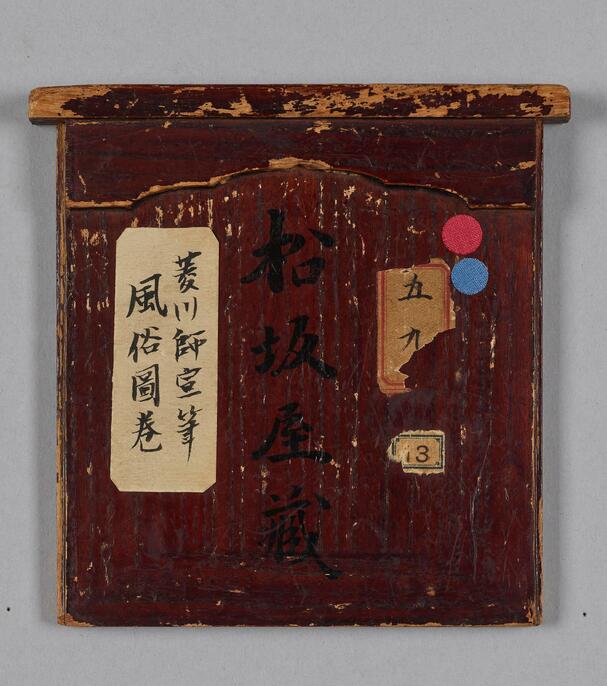 五九
13
松坂屋藏
菱川師宣筆
風俗圖卷